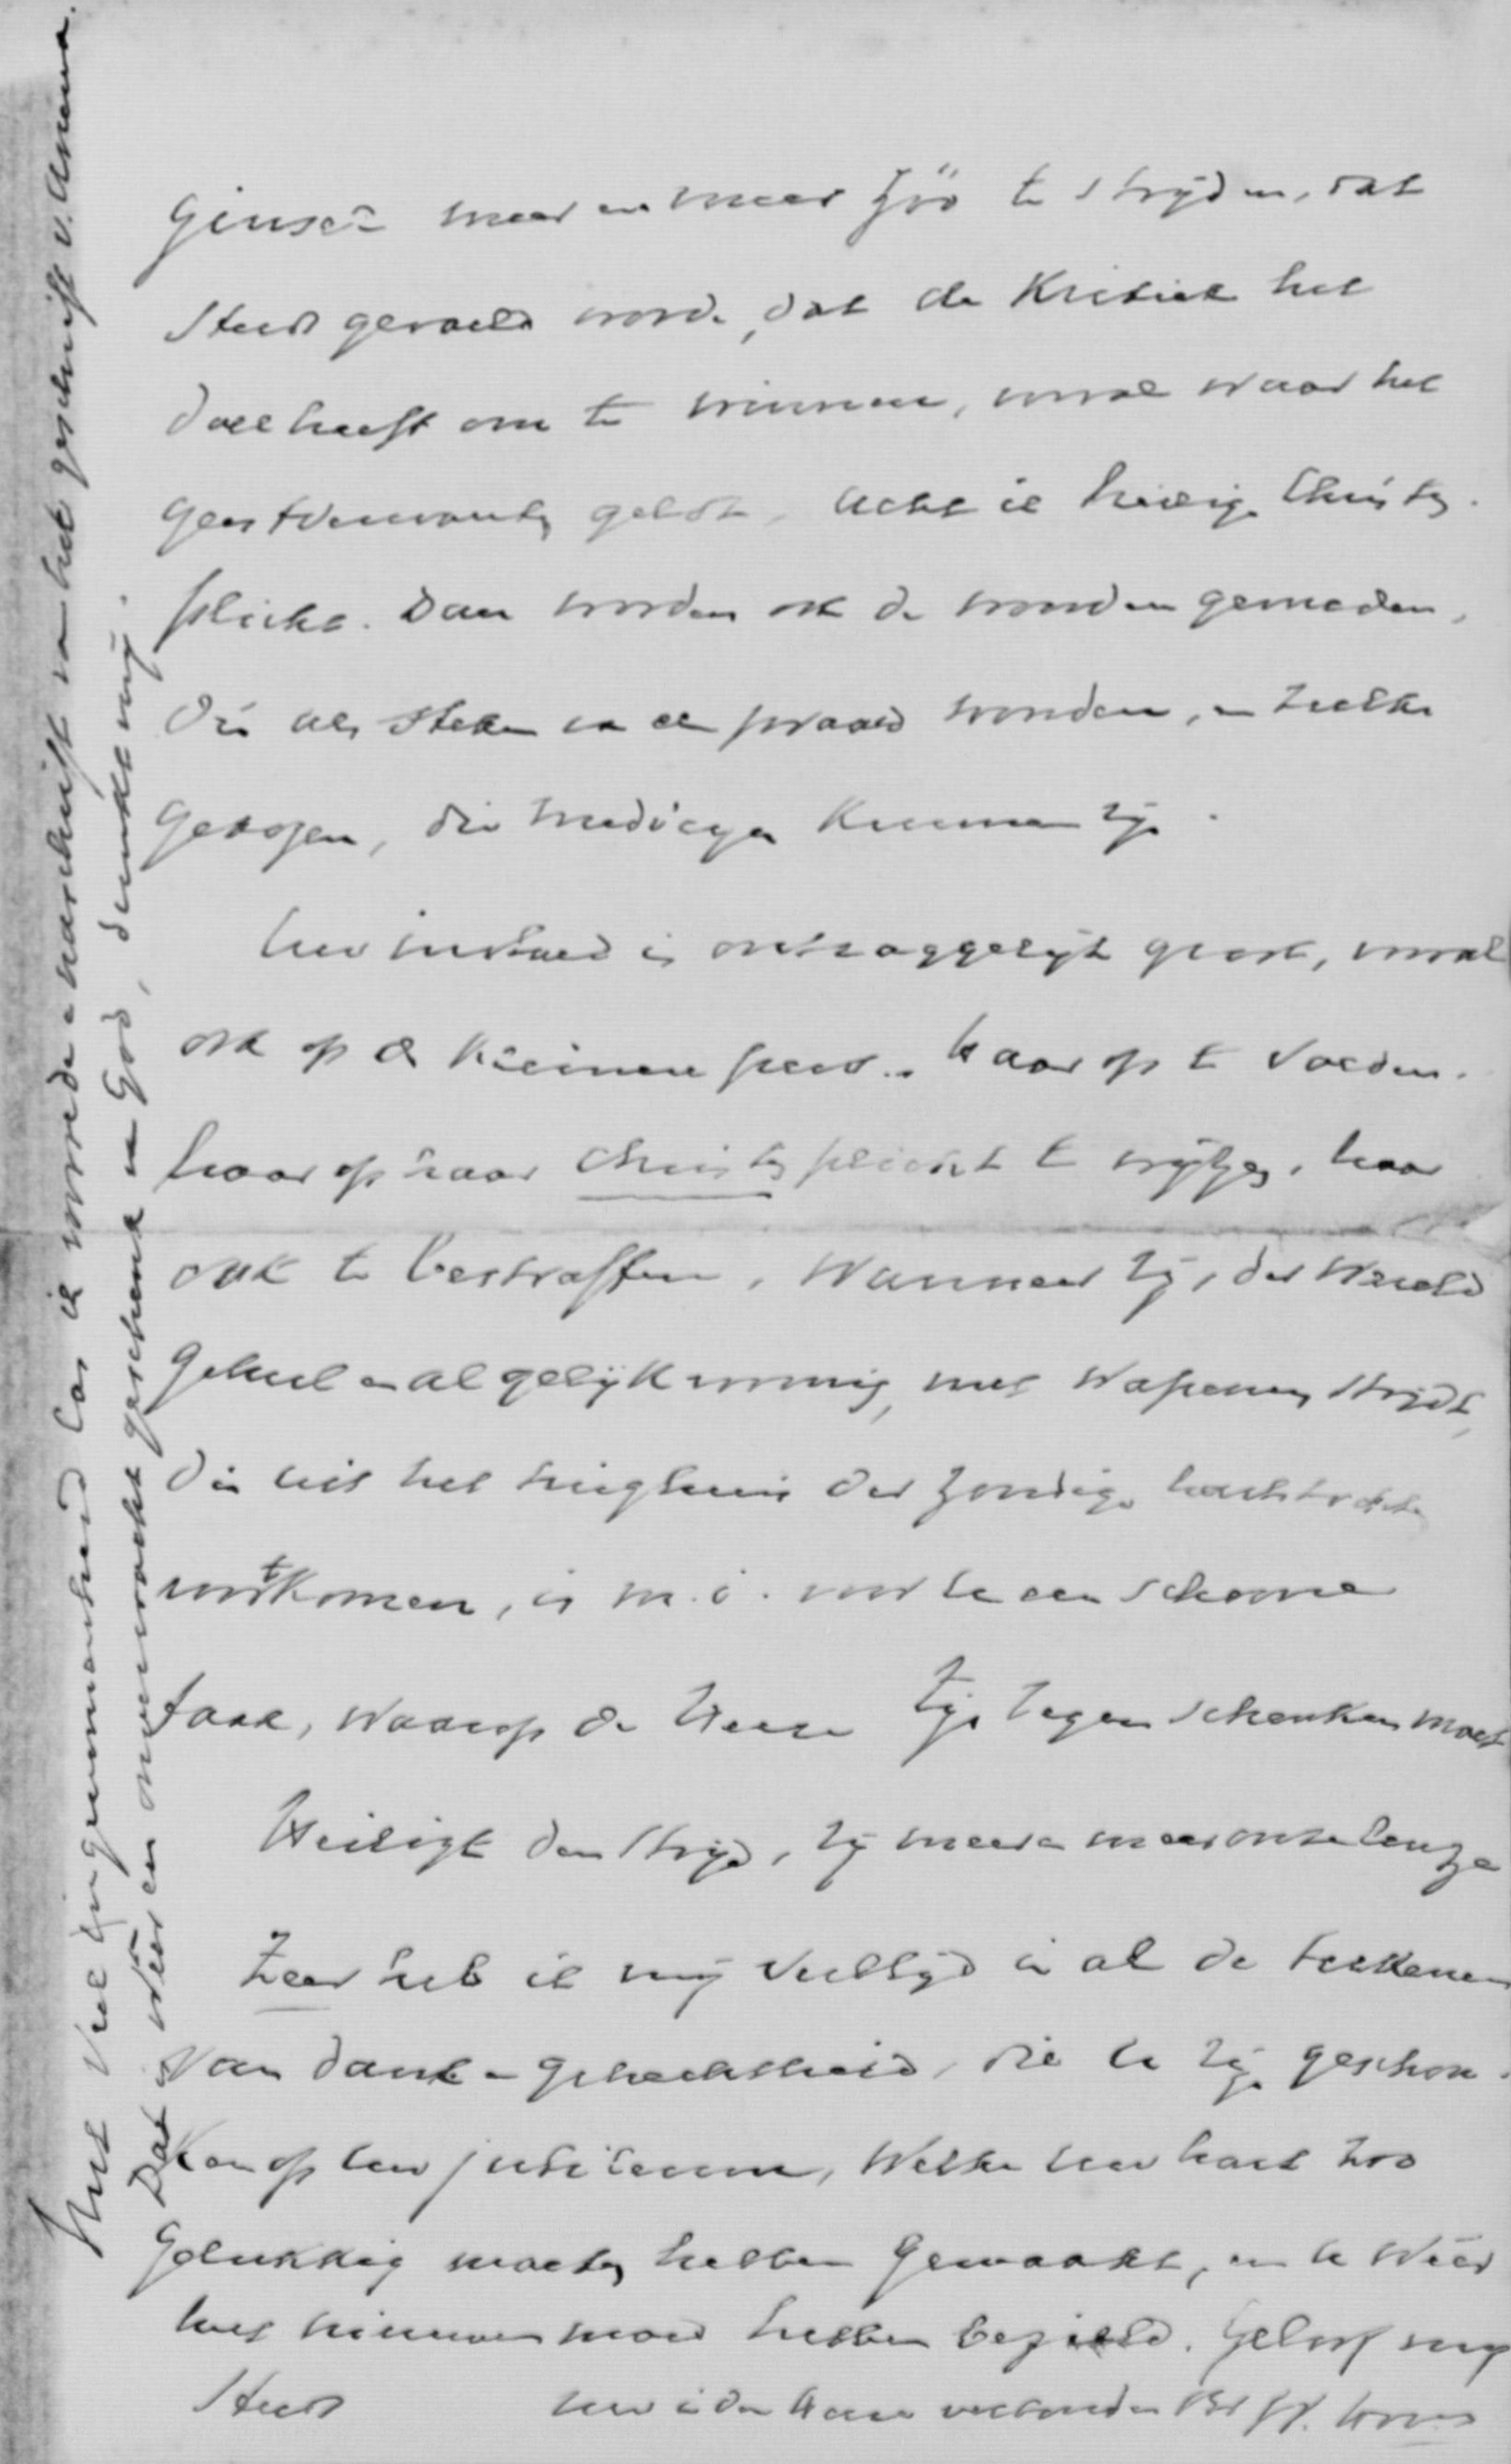 meer en meer zóó te strijden, dat
steeds gevoeld worde, dat de Kritiek het
doel heeft om te winnen, vooral waar het
geestverwanten geldt, acht ik heilige Christen-
plicht. Dan worden ook de wonden gemeden,
die als steken van een zwaard wonden, en zulke
gekozen, die medicijn kunnen zijn.
Uw invloed is ontzaggelijk groot, vooral
ook op de kleinere pers. Haar op te voeden.
haar op haar Christenplicht te wijzen, haar
ook te bestraffen, wanneer zij, der wereld
geheel en al gelijkvormig, met wapenen strijdt,
die uit het tuighuis der zondige hartstochten
voortkomen, is m.i. voor U een schoone
taak, waarop de Heere Zijn zegen schenken moet
Heiligt den strijd, zij meer en meer onze leuze
Zeer heb ik mij verblijd in al de teekenen
van dank en gehechtheid, die U zijn geschon-
ken op Uw jubileum, welke Uw hart zoo
gelukkig moeten hebben gemaakt, en U wéér
met nieuwen moed hebben bezield. Geloof mij
steeds Uw in den Heere verbonden
Met veel ingenomenheid las ik voorrede en naschrift van het geschrift v. Anema.
Dat is wéér een onverwacht geschenk van God, dunkt mij.